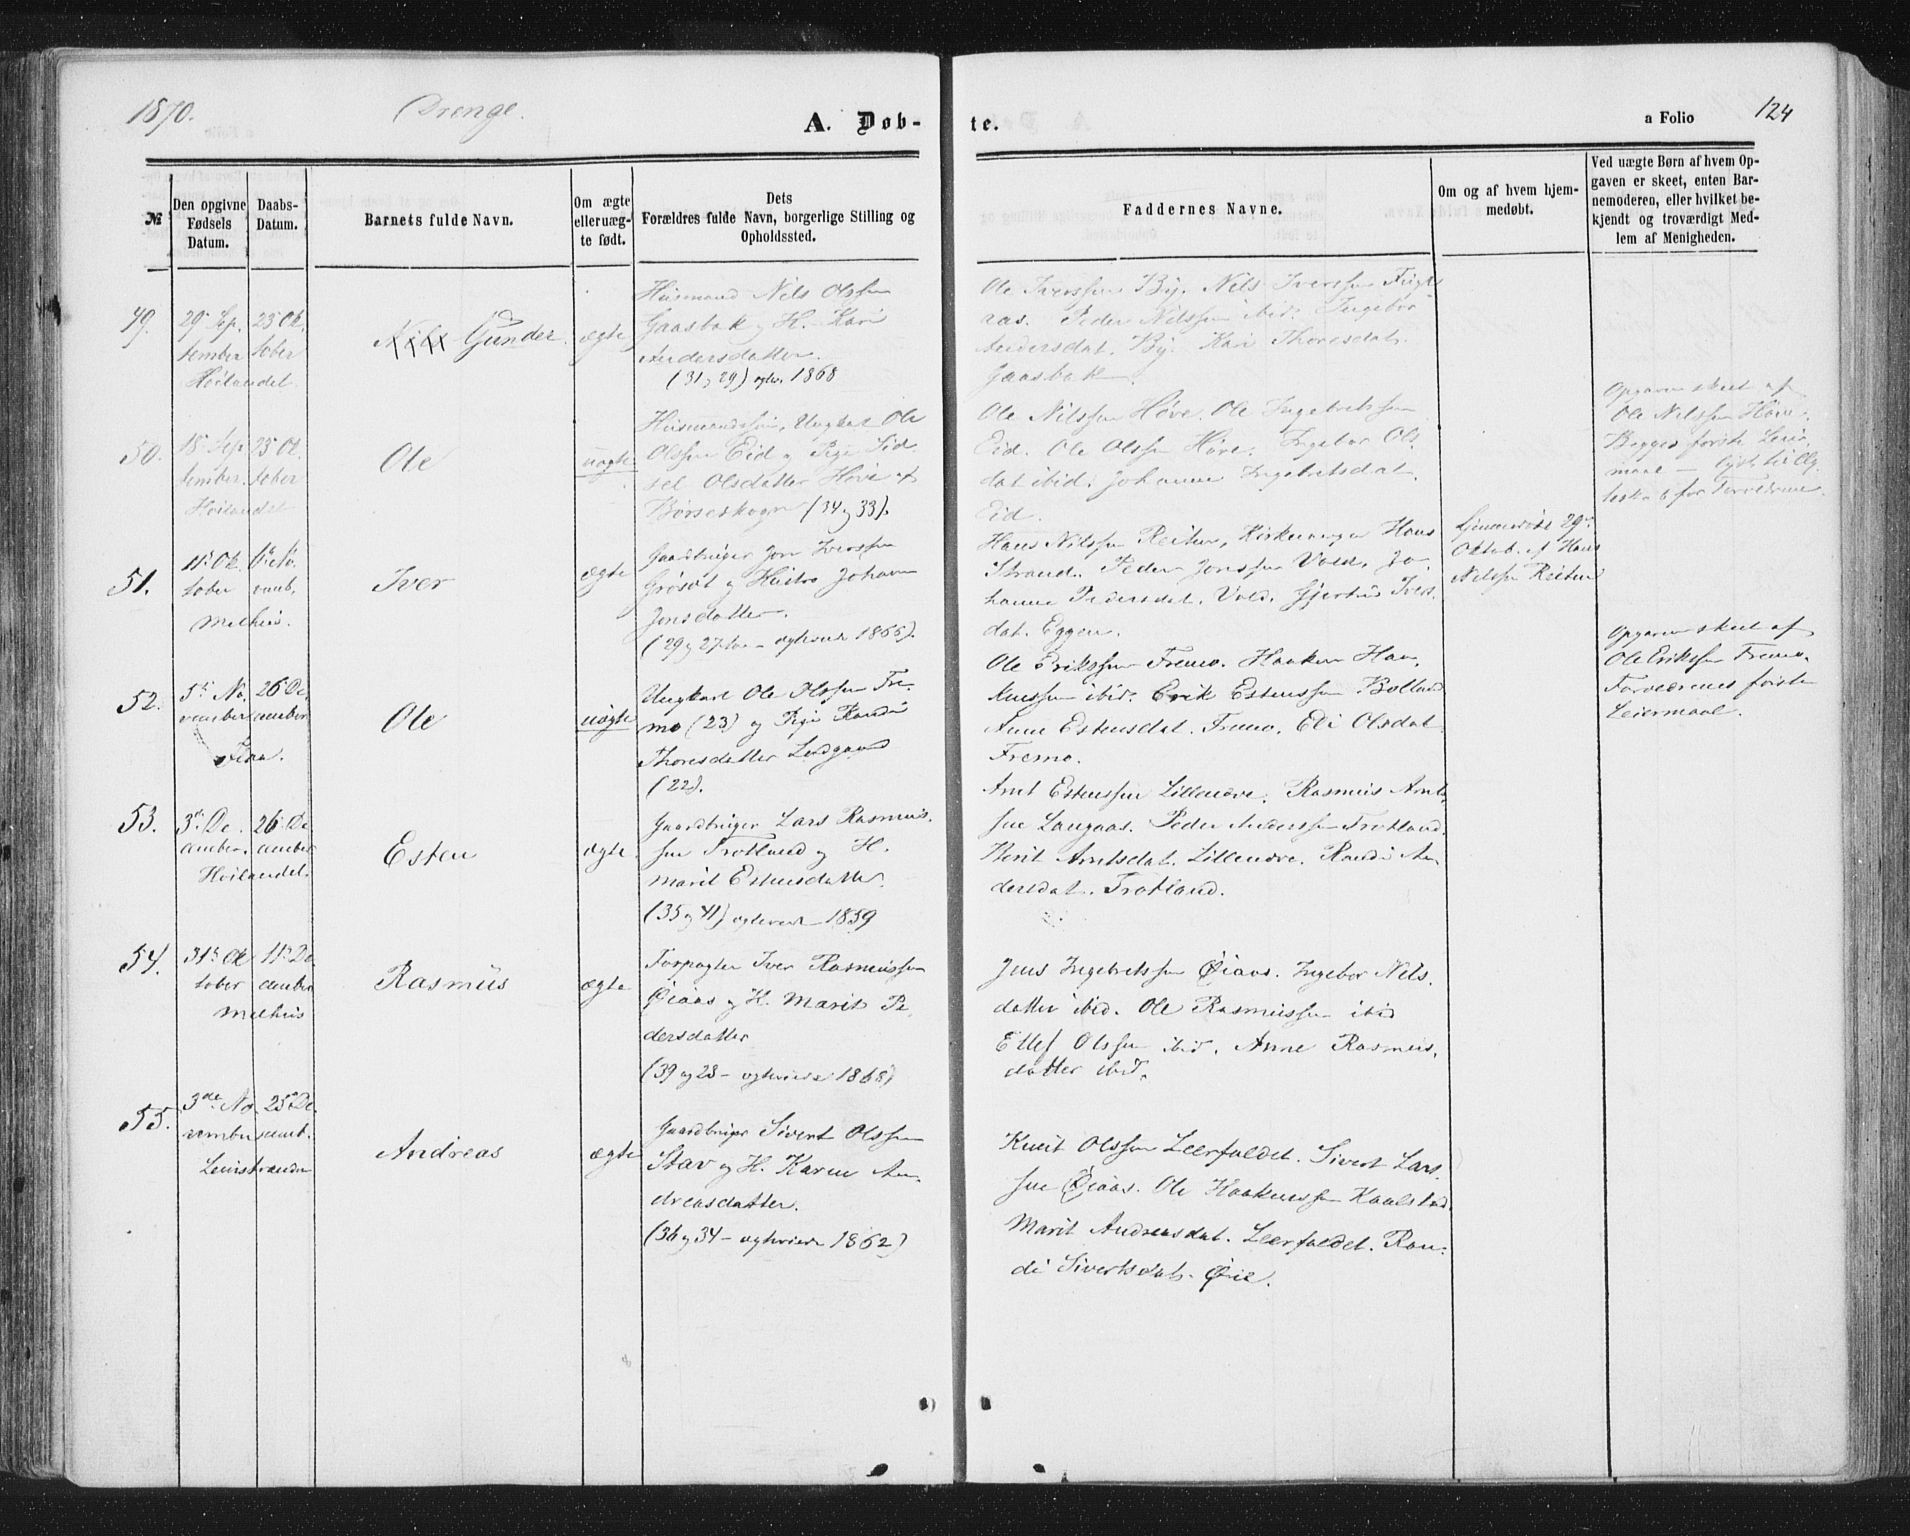 1870. Drenge.
A. Døb-
te.
a Folio 124
№
Den opgivne
Fødsels
Datum.
Daabs-
Datum.
Barnets fulde Navn.
Om ægte
elleruæg-
te født.
Dets
Forældres fulde Navn, borgerlige Stilling og
Opholdssted.
Faddernes Navne.
Om og af hvem hjem-
medøbt.
Ved uægte Børn af hvem Op-
gaven er skeet, enten Bar-
nemoderen, eller hvilket be-
kjendt og troværdigt Med-
lem af Menigheden.
49.
29de Sep.
tember
Høilandet.
23de Ok.
tober
Nils Gunder.
ægte
Husmand Nils Olssen
Gaasbak og H. Kari
Andersdatter.
(31 og 29) egtev. 1868
Ole Iverssen By. Nils Iverssen
aas. Peder Nilssen ibid. Ingebor
Andersdat. By. Kari Thoresdat.
Gaasbak.
50.
18de Sep.
tember.
Høilandet
23de Ok.
tober
Ole
uægte
Husmandssøn, Ungkarl Ole
Olssen Eid og Pige Sid.
sel Olsdatter Høve af
Børseskogn (34 og 33).
Ole Nilssen Høve. Ole Ingebrigtssen
Eid. Ole Olssen Høve. Ingebor Ols.
dat. ibid. Johanne Ingebrigtsdat.
Eid.
Opgaven skeet af
Ole Nilssen Høve.
Begges første Leier.
maal
51.
11te Ok.
tober
Melhus.
6te No.
vemb.
Iver
ægte
Gaardbruger Jon Iverssen
Grøsøt og Hustro Johanna
Jonsdatter.
(29 og 27 egteviede 1865).
Hans Nilssen Reiten, Kirkesanger Hans
Strand. Peder Jonssen Vold. Jo.
hanne Pedersdat. Vold. Gjertrud Ivers.
dat. Eggen.
Hjemmedøbt 29de
Oktob. af Hans
Nilssen Reiten
52.
5te No.
vember
Flaa.
26 De.
cember
Ole
uægte
Ungkarl Ole Olssen Fre.
mo (23) og Pige Randi
Thoresdatter Ledgaard
(22).
Ole Erikssen Fremo. Haaken Haa.
kenssen ibid. Erik Estenssen Bolland
Anne Estensdat. Fremo. Eli Olsdat.
Fremo.
Opgaven skeet af
Ole Erikssen Fremo.
Forældrenes første
Leiermaal.
53.
3de De.
cember.
Høilandet.
26de De
cember
Esten
ægte
Gaardbruger Lars Rasmus.
sen Trotland og H.
Marit Estensdatter.
(35 og 41) egteviede 1859
Arnt Estenssen Lilleøve. Rasmus Arnt.
sen Langaas. Peder Anderssen Trotland.
Berit Arntsdat. Lilleøve. Randi An.
dersdat. Trotland.
54.
31te Ok
tober
Melhus
11te De.
cember
Rasmus
ægte
Forpagter Iver Rasmussen
Øiaas og H. Marit Pe.
dersdatter
(39 og 28 – egteviede 1868)
Jens Ingebrigtssen Øiaas. Ingebor Nils.
datter ibid. Ole Rasmussen ibid
Ellef Olssen ibid. Anne Rasmus.
datter ibid.
55.
3de No.
vember
Leinstranden
25de De.
cemb.
Andreas
ægte
Gaardbruger Sivert Olssen
Stav og H. Karen An.
dreasdatter.
(36 og 34 – egteviede 1862)
Knut Olssen Leerfaldet. Sivert Lars.
sen Øiaas. Ole Haakenssen Kaalstad.
Marit Andreasdat. Leerfaldet. Ran.
di Sivertsdat. Øie.